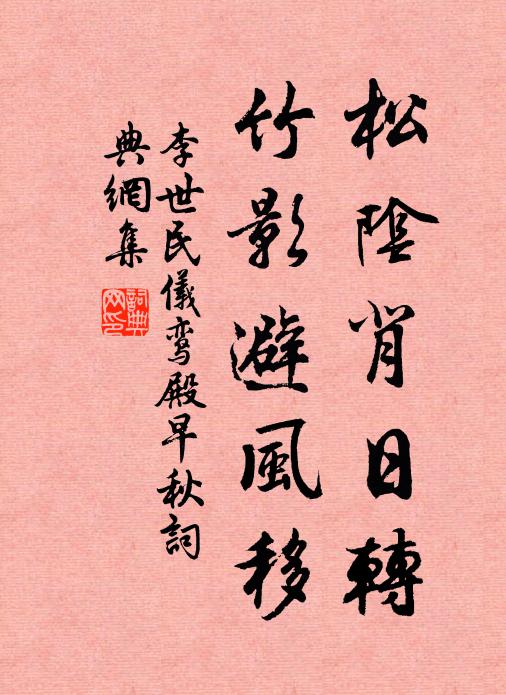 松陰背日轉
竹影避風移
李世民儀鸾殿早秋詞
典網集
詞典
网印